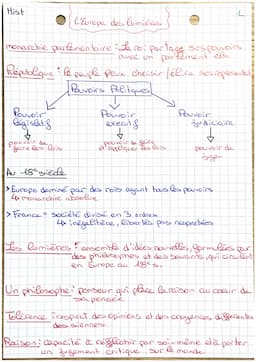 Hist
L'Europe des lumières
monarchie parlementaire : Le roi partage ses pouvoirs
avec un parlement élu
République : le peuple peux choisir / élire ses représentants
Pouvoirs Politiques
Pouvoir Pouvoir Pouvoir
législatif executif judicaire
pouvoir de faire
faire les lois d'appliquer les lois pouvoir de
juger
Au 18e siècle
> Europe dominé par des rois ayant tous les pouvoirs
↳ monarchie absolue
> France = société divisé en 3 ordres
↳ inégalitère, libertés pas respectées
Les Lumières : ensemble d'idées nouvelles, formulées par
des philosophes et des savants, qui circulent
en Europe au 18e s.
Un philosophe : penseur qui place la raison au coeur de
sa pensée
Tolérence : respect des opinions et des croyances différentes
des siennes.
Raison : capacité à réfléchir par soi-même et à porter
un jugement critique sur le monde